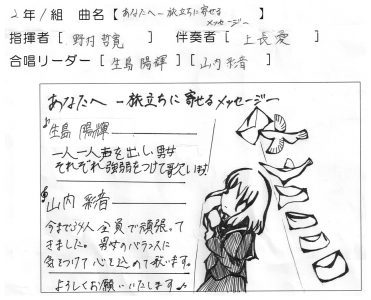 2年1組 曲名【あなたへ-旅立ちに寄せるメッセージ-】
指揮者[野村 哲寛] 伴奏者[上長 愛]
合唱リーダー[生島 陽輝][山内 彩音]
あなたへ -旅立ちに寄せるメッセージ-
生島 陽輝
一人一人声を出し、男女
それぞれ強弱をつけて歌います!
山内 彩音
今まで34人全員で頑張って
きました。男女のバランスに
気をつけて心を込めて歌います。
よろしくお願いいたします♪